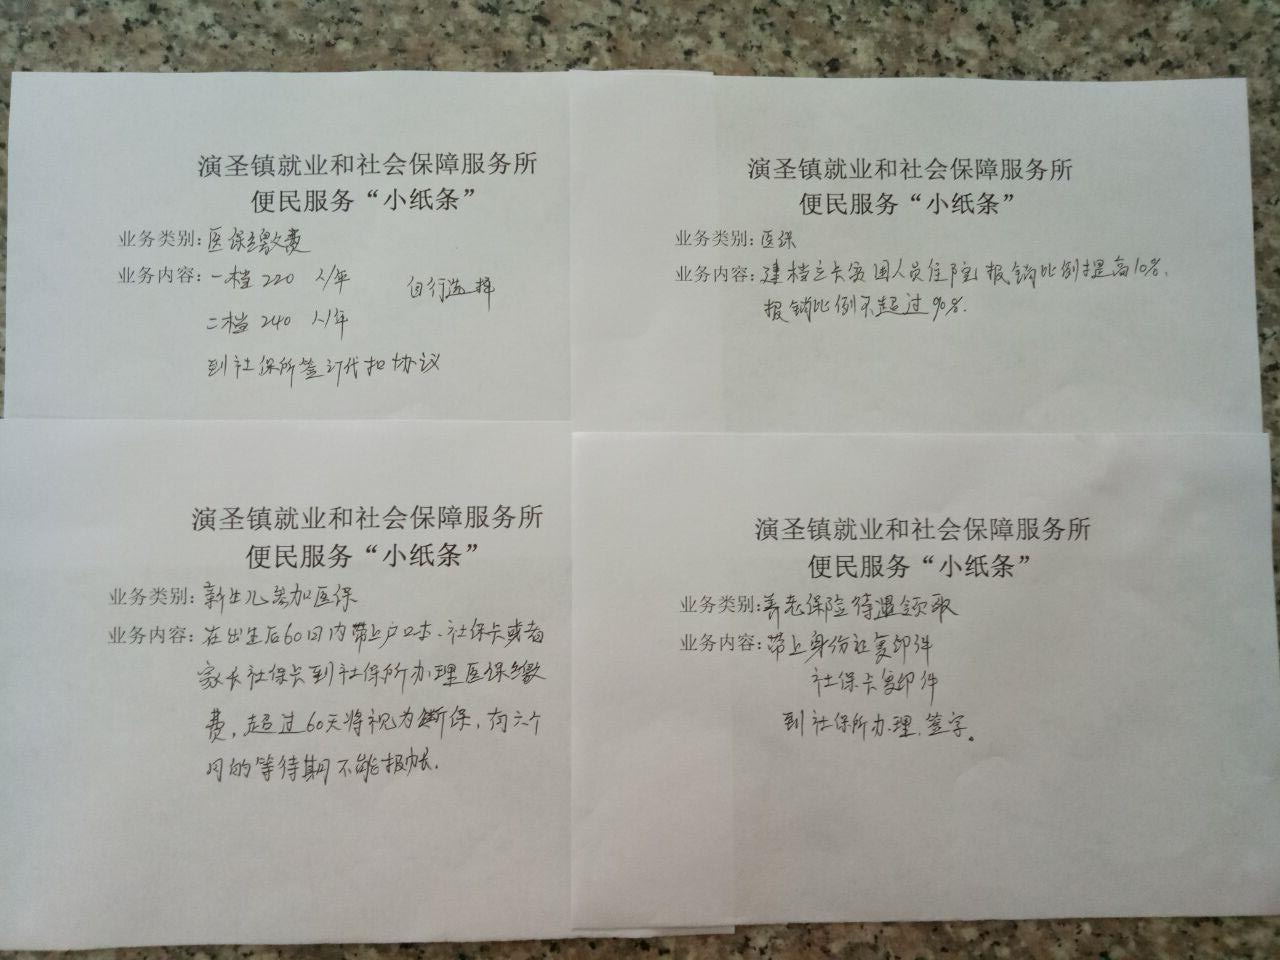 演圣镇就业和社会保障服务所
便民服务“小纸条”
业务类别:医保缴费
业务内容:一档 220 人/年 自行选择
二档 240 人/年
到社保所签订代扣协议
演圣镇就业和社会保障服务所
便民服务“小纸条”
业务类别:医保
业务内容:建档立卡贫困人员住院报销比例提高10%,
报销比例不超过90%.
演圣镇就业和社会保障服务所
便民服务“小纸条”
业务类别:新生儿参加医保
业务内容:在出生后60日内带上户口本、社保卡或者
家长社保卡到社保所办理医保缴
费,超过60天将视为断保,有六个
月的等待期不能报帐.
演圣镇就业和社会保障服务所
便民服务“小纸条”
业务类别:养老保险待遇领取
业务内容:带上身份证复印件
社保卡复印件
到社保所办理、签字。